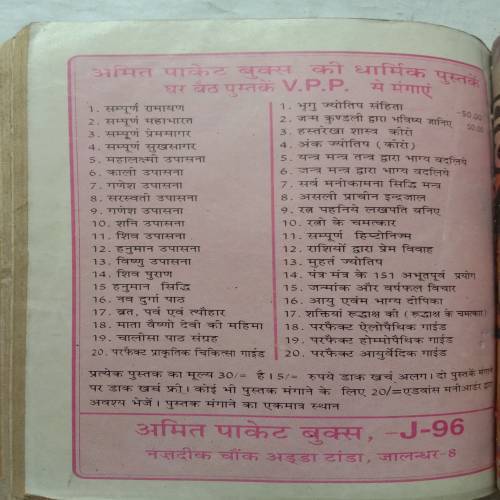 अमित पाकेट बुक्स की धार्मिक पुस्तकें
घर बैठ पुस्तकें V.P.P. से मंगाएं
1. सम्पूर्ण रामायण
2. सम्पूर्ण महाभारत
3. सम्पूर्ण प्रेमसागर
4. सम्पूर्ण सुखसागर
5. महालक्ष्मी उपासना
6. काली उपासना
7. गणेश उपासना
8. सरस्वती उपासना
9. गणेश उपासना
10. शनि उपासना
11. शिव उपासना
12. हनुमान उपासना
13. विष्णु उपासना
14. शिव पुराण
15 हनुमान सिद्धि
16. नव दुर्गा पाठ
17. व्रत, पर्व एवं त्यौहार
18. माता वैष्णो देवी की महिमा
19. चालीसा पाठ संग्रह
20. परफैक्ट प्राकृतिक चिकित्सा गाईड
1. भृगु ज्योतिष संहिता -50.00
2. जन्म कुण्डली द्वारा भविष्य जानिए 50.00
3. हस्तरेखा शास्त्र कीरो
4. अंक ज्योतिष (कीरो)
5. यन्त्र मन्त्र तन्त्र द्वारा भाग्य बदलिये
6. जन्त्र मन्त्र द्वारा भाग्य बदलिये
7. सर्व मनोकामना सिद्धि मन्त्र
8. असली प्राचीन इन्द्रजाल
9. रत्न पहनिये लखपति बनिए
10. रत्नो के चमत्कार
11. सम्पूर्ण हिप्टोनिज्म
12. राशियों द्वारा प्रेम विवाह
13. मुहर्त ज्योतिष
14. यंत्र मंत्र के 151 अभूतपूर्व प्रयोग
15. जन्मांक और वर्षफल विचार
16. आयु एवंम भाग्य दीपिका
17. शक्तियां रूद्राक्ष की (रूद्राक्ष के चमत्कार)
18. परफैक्ट ऐलोपैथिक गाईड
19. परफैक्ट होम्मोपैथिक गाईड
20. परफैक्ट आयुर्वेदिक गाईड
प्रत्येक पुस्तक का मूल्य 30/= है। 5/= रुपये डाक खर्च अलग। दो पुस्तकें मंगाने
पर डाक खर्च फ्री। कोई भी पुस्तक मंगाने के लिए 20/=एडवांस मनीआर्डर द्वारा
अवश्य भेजें। पुस्तक मंगाने का एकमात्र स्थान
अमित पाकेट बुक्स, -J-96
नज़दीक चौंक अड्डा टांडा, जालन्धर-8